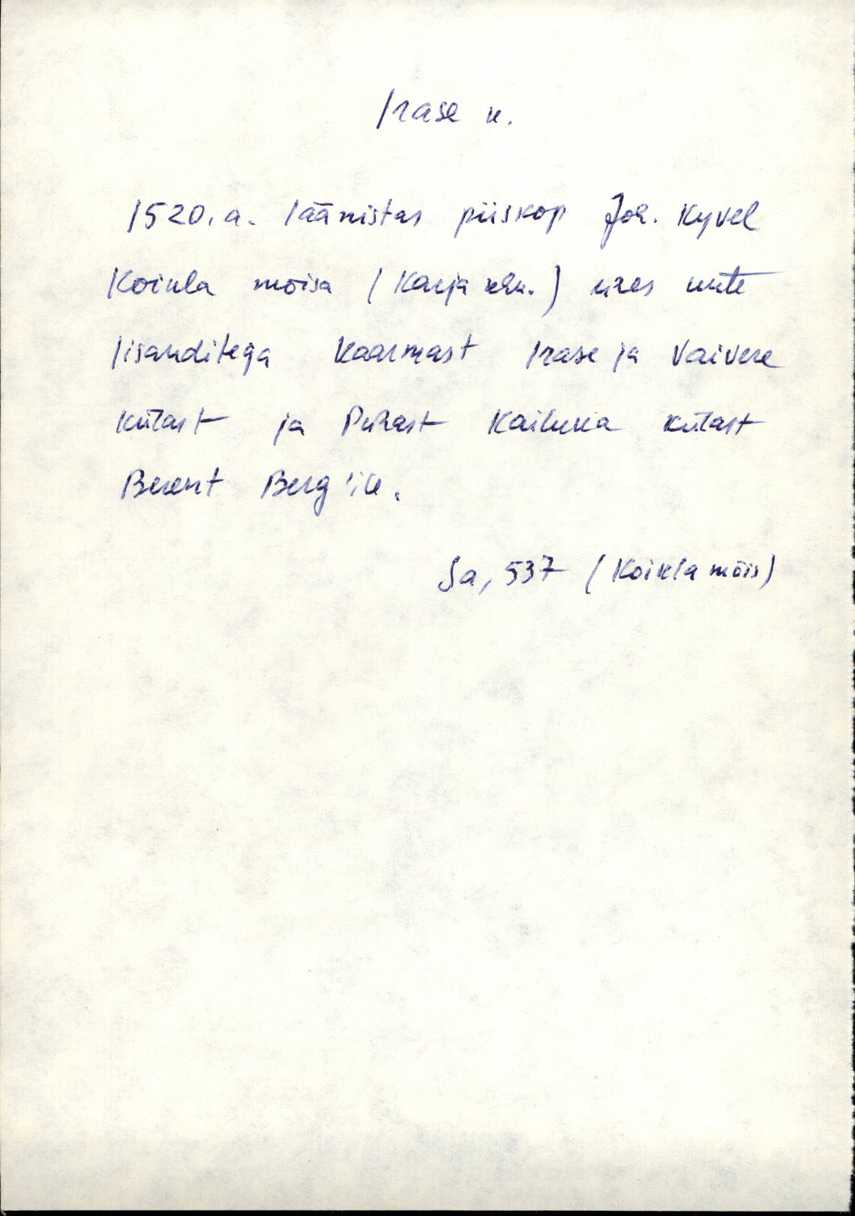 Irase k.
1520. a. läänistas piiskop Joh. Kyvel
Koikla mõisa (Karja khk.) ühes mitte
lisanditega Kaarmast Irase ja Vaivere
külast ja Pühast Kailuka külast
Berent Berg'ile.
Sa, 537 (Koikla mõis)